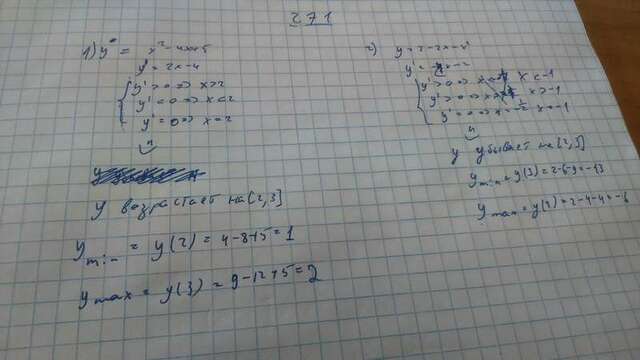 271
1) y = x² - 4x + 5
y' = 2x - 4
y' > 0 => x > 2
y' = 0 => x = 2
y возрастает на [2,3]
y min = y(2) = 4-8+5 = 1
y max = y(3) = 9-12+5 = 2
2) y = 2-2x-x²
x < -1
x > -1
x = -1
y убывает на [2,3]
y min = y(3) = 2-6-9 = -13
y max = y(2) = 2-4-4 = -6